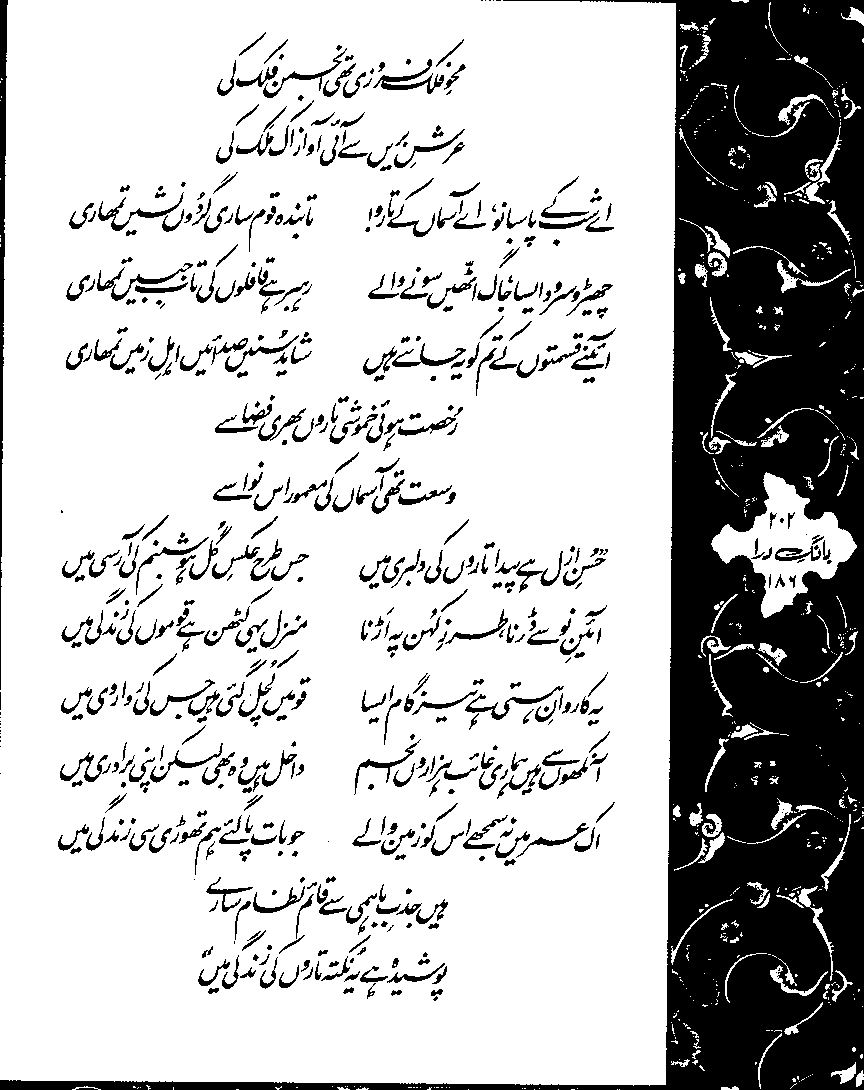 محوِ فلک فروزی تھی انجمن فلک کی
عرشِ بریں سے آئی آواز اک ملک کی
اے شب کے پاسبانو، اے آسماں کے تارو! تابندہ قوم ساری گردُوں نشیں تمھاری
چھیڑو سرود ایسا، جاگ اٹھّیں سونے والے رہبر ہے قافلوں کی تابِ جبیں تمھاری
آئینے قسمتوں کے تم کو یہ جانتے ہیں شاید سُنیں صدائیں اہلِ زمیں تمھاری
رخصت ہوئی خموشی تاروں بھری فضا سے
وسعت تھی آسماں کی معمور اس نوا سے
”حُسنِ ازل ہے پیدا تاروں کی دلبری میں جس طرح عکسِ گُل ہو شبنم کی آرسی میں
آئینِ نو سے ڈرنا، طرزِ کہُن پہ اَڑنا منزل یہی کٹھن ہے قوموں کی زندگی میں
یہ کاروانِ ہستی ہے تیز گام ایسا قومیں کُچل گئی ہیں جس کی رواروی میں
آنکھوں سے ہیں ہماری غائب ہزاروں انجم داخل ہیں وہ بھی لیکن اپنی برادری میں
اک عمر میں نہ سمجھے اس کو زمین والے جو بات پا گئے ہم تھوڑی سی زندگی میں
ہیں جذبِ باہمی سے قائم نظام سارے
پوشیدہ ہے یہ نُکتہ تاروں کی زندگی میں“
۲۰۲
بانگِ درا
۱۸۶